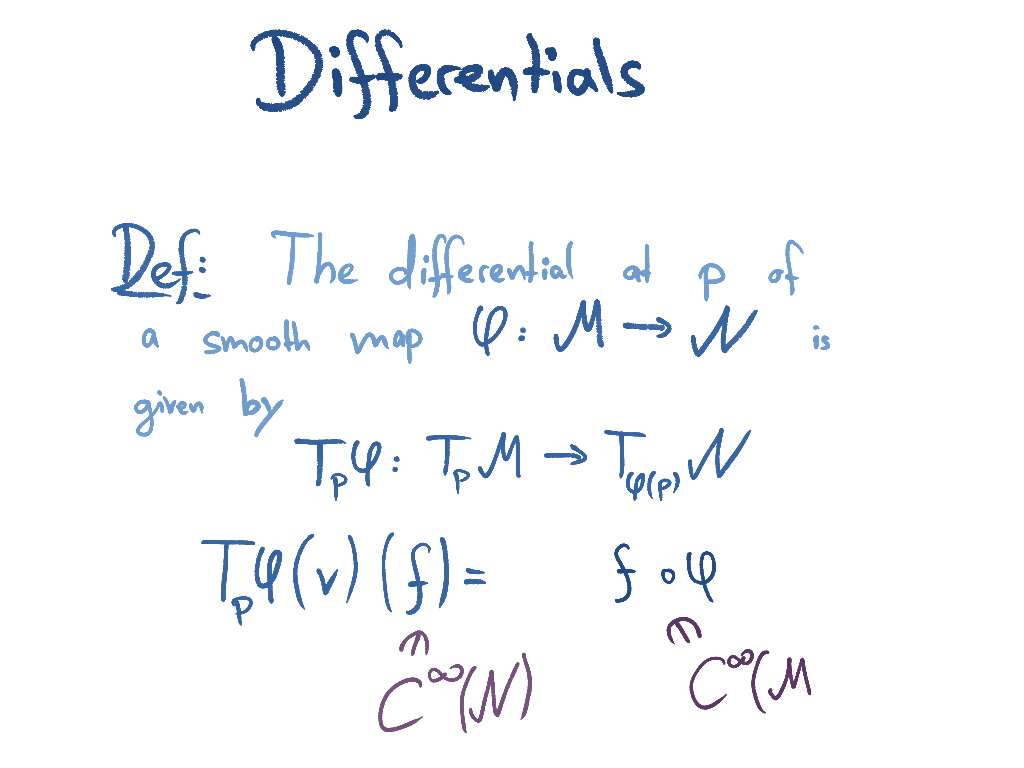 Differentials
Def: The differential at p of
a smooth map φ: M → N is
given by
Tₚφ: TₚM → T_φ(p) N
Tₚφ(v)(f) = f ∘ φ
∈ ∈
C^∞(N) C^∞(M